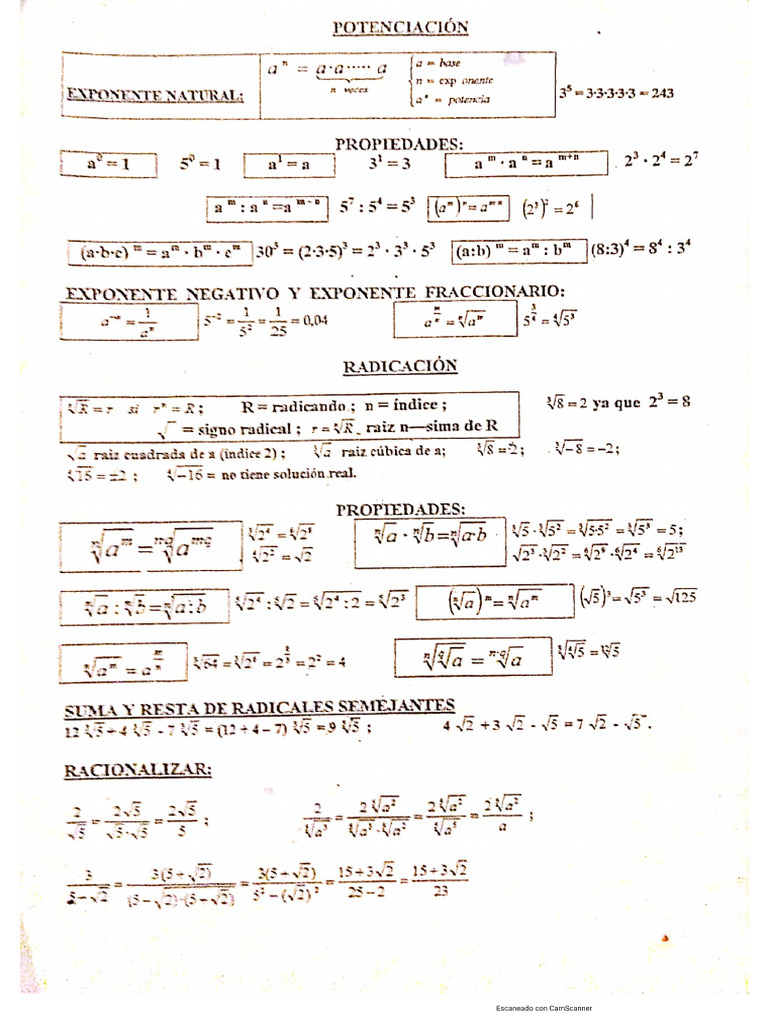 POTENCIACIÓN
EXPONENTE NATURAL: aⁿ = a·a····· a (n veces) { a = base
n = exp onente
aⁿ = potencia
3⁵ = 3·3·3·3·3 = 243
PROPIEDADES:
a⁰ = 1 5⁰ = 1 a¹ = a 3¹ = 3 aᵐ · aⁿ = aᵐ⁺ⁿ 2³ · 2⁴ = 2⁷
aᵐ : aⁿ = aᵐ⁻ⁿ 5⁷ : 5⁴ = 5³ (aᵐ)ⁿ = aᵐ·ⁿ (2³)² = 2⁶
(a·b·c)ᵐ = aᵐ · bᵐ · cᵐ 30³ = (2·3·5)³ = 2³ · 3³ · 5³ (a:b)ᵐ = aᵐ : bᵐ (8:3)⁴ = 8⁴ : 3⁴
EXPONENTE NEGATIVO Y EXPONENTE FRACCIONARIO:
a⁻ⁿ = 1/aⁿ 5⁻² = 1/5² = 1/25 = 0,04 a^(m/n) = ⁿ√aᵐ 5^(3/4) = ⁴√5³
RADICACIÓN
ⁿ√R = r si rⁿ = R ; R = radicando ; n = índice ; ³√8 = 2 ya que 2³ = 8
√ = signo radical ; r = ⁿ√R . raiz n—sima de R
√a raiz cuadrada de a (índice 2) ; ³√a raiz cúbica de a; ³√8 = 2 ; ³√-8 = -2;
= ±2 ; ⁴√-16 = no tiene solución real.
PROPIEDADES:
ⁿ√aᵐ = ⁿ·q√aᵐ·q
ⁿ√a · ⁿ√b = ⁿ√a·b ³√5 · ³√5² = ³√5·5² = ³√5³ = 5 ;
√2³ · ³√2² = ⁶√2⁹ · ⁶√2⁴ = ⁶√2¹³
ⁿ√a : ⁿ√b = ⁿ√a:b ⁵√2⁴ : ⁵√2 = ⁵√2⁴ : 2 = ⁵√2³ (ⁿ√a)ᵐ = ⁿ√aᵐ (√5)³ = √5³ = √125
ⁿ√aᵐ = a^(m/n) ³√64 = ³√2⁶ = 2^(6/3) = 2² = 4 ⁿ√q√a = ⁿ·q√a
SUMA Y RESTA DE RADICALES SEMEJANTES
12 ³√5 + 4 ³√5 - 7 ³√5 = (12 + 4 – 7) ³√5 = 9 ³√5 ; 4 √2 + 3 √2 - √5 = 7 √2 - √5 .
RACIONALIZAR:
2/√5 = 2√5/(√5·√5) = 2√5/5 ; 2/⁵√a³ = 2 ⁵√a²/(⁵√a³·⁵√a²) = 2 ⁵√a²/⁵√a⁵ = 2 ⁵√a²/a ;
3/(5-√2) = 3(5+√2)/((5-√2)·(5+√2)) = 3(5+√2)/(5²-(√2)²) = (15+3√2)/(25-2) = (15+3√2)/23
Escaneado con CamScanner